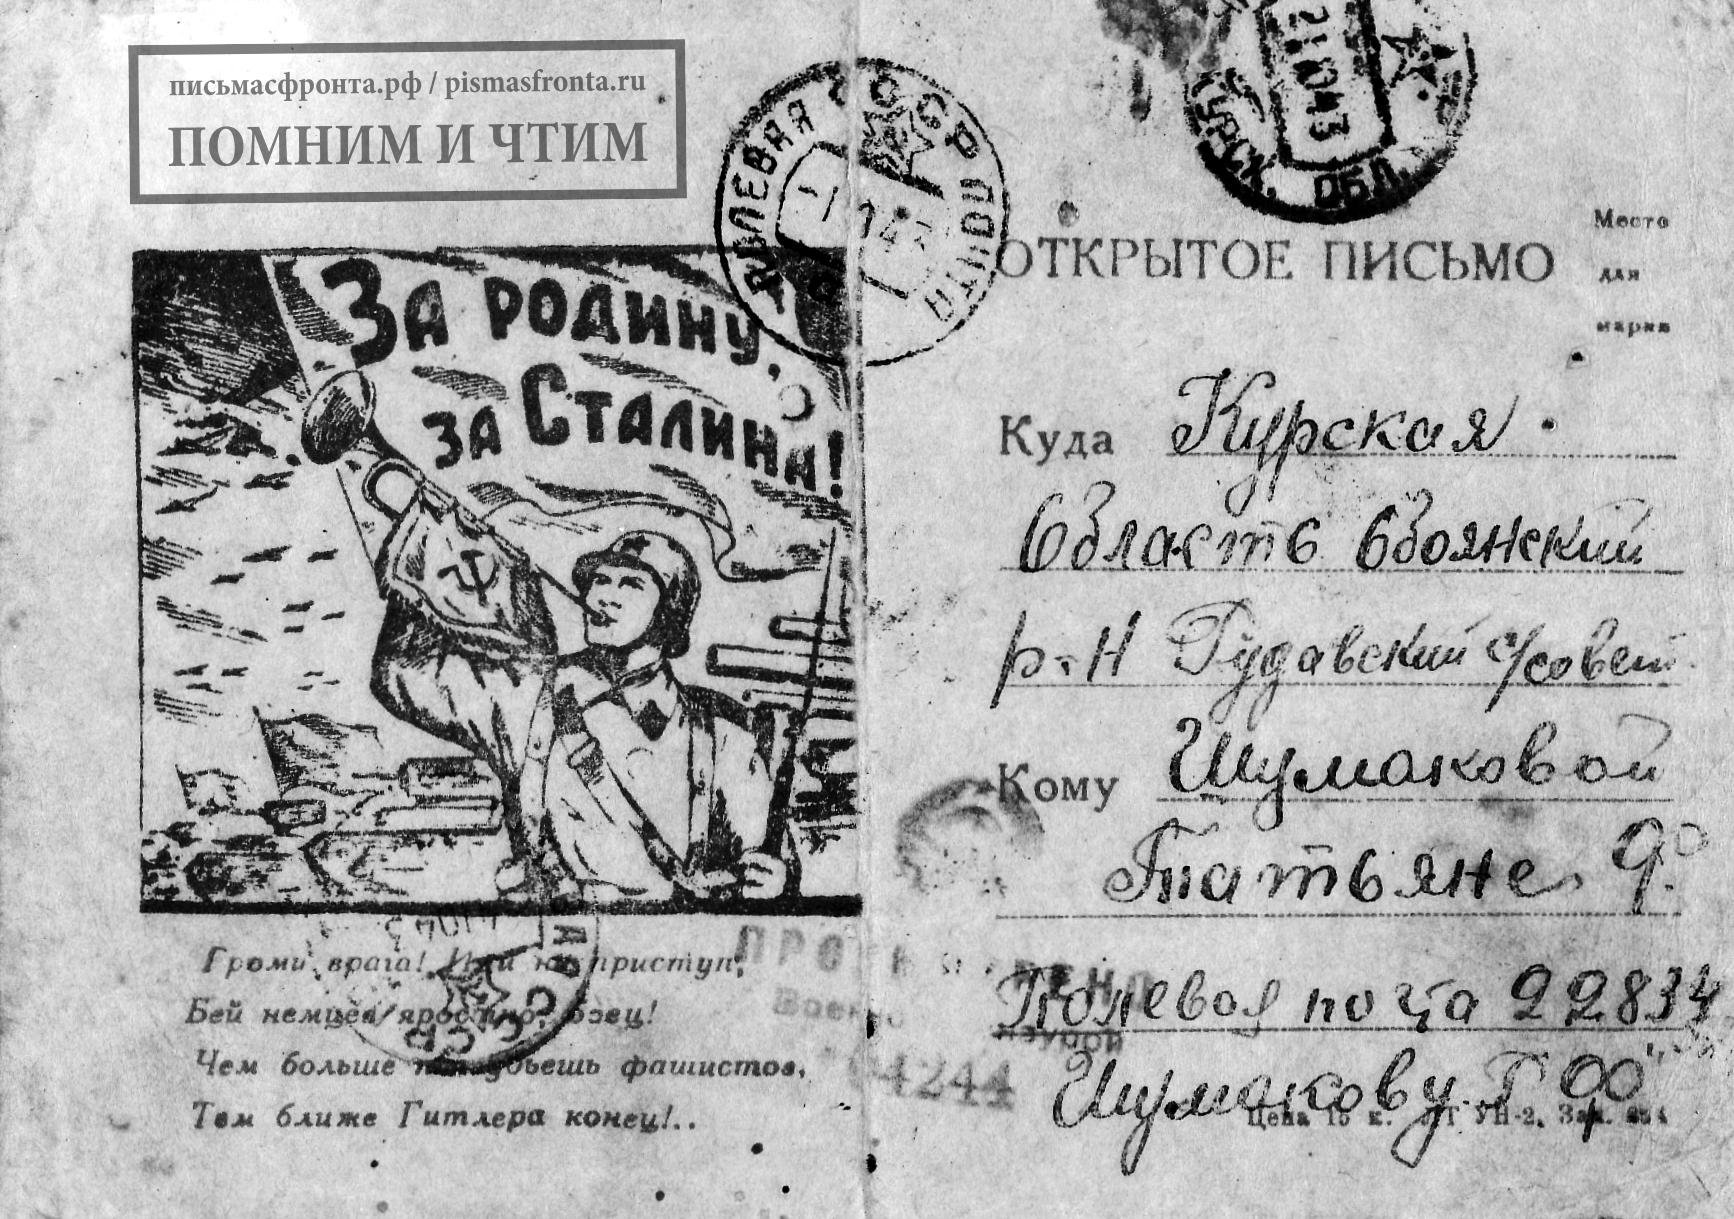 письмасфронта.рф / pismasfronta.ru
ПОМНИМ И ЧТИМ
ПОЛЕВАЯ ПОЧТА
СССР
21 10 43
КУРСК. ОБЛ.
ОТКРЫТОЕ ПИСЬМО
Место
для
марки
За РОДИНУ,
за СТАЛИНА!
Куда Курская
Область Обоянский
р-н Рудавский с/совет
Кому Шумаковой
Татьяне
Полевая почта 22834
Шумакову
Цена 15 к.
Громи врага! Иди на приступ,
Бей немцев яростно, боец!
Чем больше ты убьешь фашистов,
Тем ближе Гитлера конец!..
СССР
ПРОСМОТРЕНО
Военной
Цензурой
24244